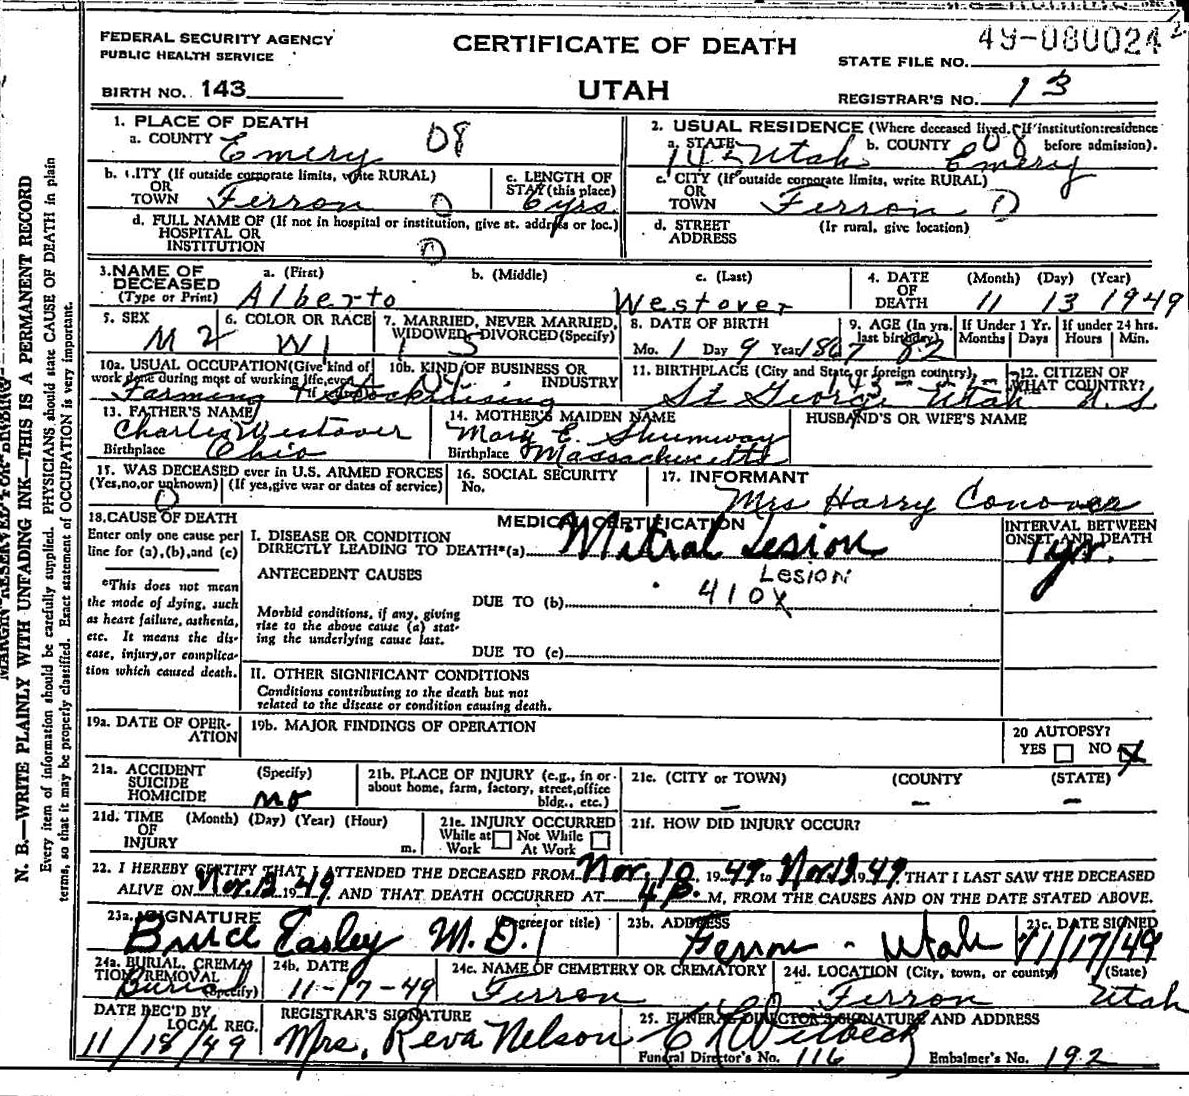 FEDERAL SECURITY AGENCY
PUBLIC HEALTH SERVICE
BIRTH NO. 143
CERTIFICATE OF DEATH
UTAH
49-080024
STATE FILE NO.
REGISTRAR'S NO. 13
1. PLACE OF DEATH
a. COUNTY Emery 08
b. CITY (If outside corporate limits, write RURAL)
OR
TOWN Ferron 0
c. LENGTH OF
STAY (this place)
6 yrs.
d. FULL NAME OF (If not in hospital or institution, give st. address or loc.)
HOSPITAL OR
INSTITUTION 0
2. USUAL RESIDENCE (Where deceased lived. If institution: residence
before admission).
a. STATE Utah b. COUNTY 08 Emery
c. CITY (If outside corporate limits, write RURAL)
OR
TOWN Ferron 0
d. STREET (If rural, give location)
ADDRESS
3. NAME OF DECEASED
(Type or Print)
a. (First) b. (Middle) c. (Last)
Alberto Westover
4. DATE OF DEATH
(Month) (Day) (Year)
11 13 1949
5. SEX
M 2
6. COLOR OR RACE
W 1
7. MARRIED, NEVER MARRIED,
WIDOWED, DIVORCED (Specify)
1 S
8. DATE OF BIRTH
Mo. 1 Day 9 Year 1867
9. AGE (In yrs. last birthday)
82
If Under 1 Yr.
Months Days
If under 24 hrs.
Hours Min.
10a. USUAL OCCUPATION (Give kind of
work done during most of working life, even
if
Farming & Stockraising
10b. KIND OF BUSINESS OR
INDUSTRY
11. BIRTHPLACE (City and State or foreign country)
143
St George Utah
12. CITIZEN OF
WHAT COUNTRY?
U.S.
13. FATHER'S NAME
Charles Westover
Birthplace Ohio
14. MOTHER'S MAIDEN NAME
Mary E. Shumway
Birthplace Massachusetts
HUSBAND'S OR WIFE'S NAME
15. WAS DECEASED ever in U.S. ARMED FORCES
(Yes, no, or unknown) (If yes, give war or dates of service)
0
16. SOCIAL SECURITY
No.
17. INFORMANT
Mrs Harry Conover
18. CAUSE OF DEATH
Enter only one cause per
line for (a), (b), and (c)
*This does not mean
the mode of dying, such
as heart failure, asthenia,
etc. It means the dis-
ease, injury, or complica-
tion which caused death.
MEDICAL CERTIFICATION
I. DISEASE OR CONDITION
DIRECTLY LEADING TO DEATH*(a) Mitral Lesion
Lesion
ANTECEDENT CAUSES
DUE TO (b) 410X
Morbid conditions, if any, giving
rise to the above cause (a) stat-
ing the underlying cause last.
DUE TO (c)
II. OTHER SIGNIFICANT CONDITIONS
Conditions contributing to the death but not
related to the disease or condition causing death.
INTERVAL BETWEEN
ONSET AND DEATH
1 yr.
19a. DATE OF OPER-
ATION
19b. MAJOR FINDINGS OF OPERATION
20 AUTOPSY?
YES NO X
21a. ACCIDENT
SUICIDE
HOMICIDE
(Specify)
no
21b. PLACE OF INJURY (e.g., in or
about home, farm, factory, street, office
bldg., etc.)
21c. (CITY or TOWN) (COUNTY) (STATE)
– – –
21d. TIME OF INJURY
(Month) (Day) (Year) (Hour)
m.
21e. INJURY OCCURRED
While at Work Not While At Work
21f. HOW DID INJURY OCCUR?
22. I HEREBY CERTIFY THAT I ATTENDED THE DECEASED FROM Nov. 10, 1949 to Nov 13 1949 THAT I LAST SAW THE DECEASED
ALIVE ON Nov. 13 1949 AND THAT DEATH OCCURRED AT 4 P. M, FROM THE CAUSES AND ON THE DATE STATED ABOVE.
23a. SIGNATURE (Degree or title)
Bruce Easley M.D.
23b. ADDRESS
Ferron - Utah
23c. DATE SIGNED
11/17/49
24a. BURIAL, CREMA-
TION, REMOVAL
(Specify)
Burial
24b. DATE
11-17-49
24c. NAME OF CEMETERY OR CREMATORY
Ferron
24d. LOCATION (City, town, or county) (State)
Ferron Utah
DATE REC'D BY
LOCAL REG.
11/18/49
REGISTRAR'S SIGNATURE
Mrs. Reva Nelson
25. FUNERAL DIRECTOR'S SIGNATURE AND ADDRESS
Funeral Director's No. 116 Embalmer's No. 192
MARGIN RESERVED FOR BINDING
N. B.—WRITE PLAINLY WITH UNFADING INK—THIS IS A PERMANENT RECORD
Every item of information should be carefully supplied. PHYSICIANS should state CAUSE OF DEATH in plain
terms, so that it may be properly classified. Exact statement of OCCUPATION is very important.